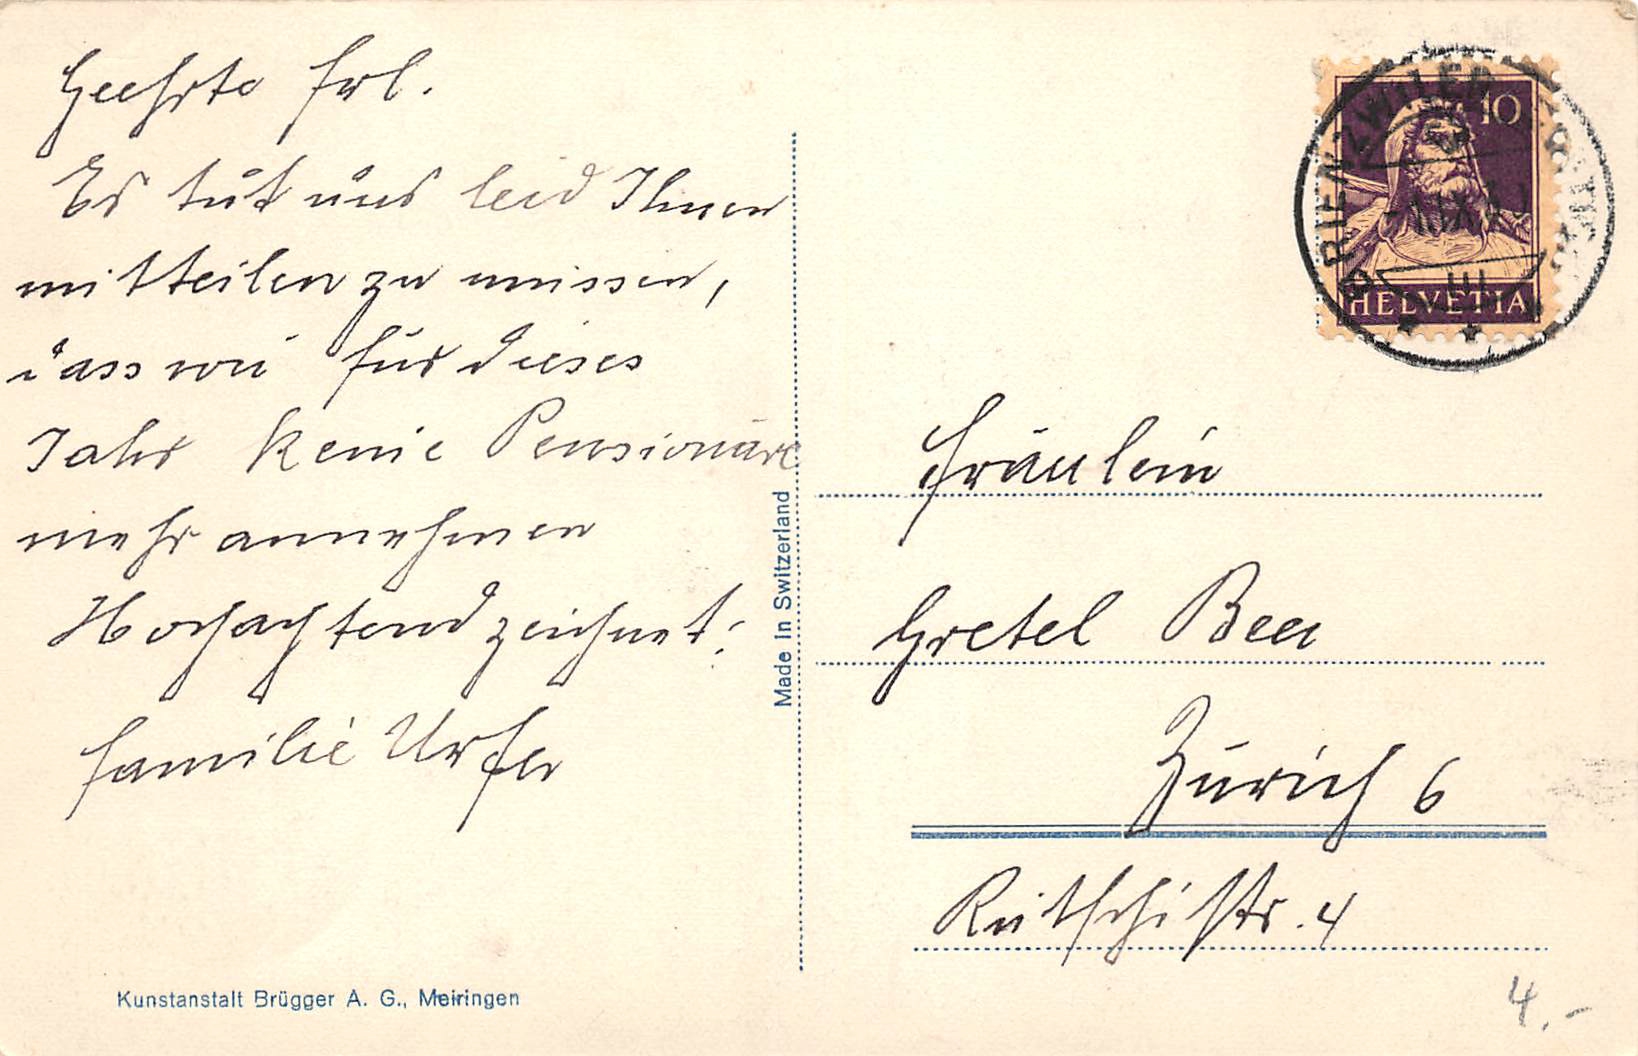 Geehrte Frl.
Es tut uns leid Ihnen
mitteilen zu müssen,
dass wir für dieses
Jahr keine Pensionäre
mehr annehmen
Hochachtend zeichnet:
Familie Urfer
Made in Switzerland
Kunstanstalt Brügger A. G., Meiringen
10
HELVETIA
BRIENZWILER
III
Fräulein
Gretel Beer
Zürich 6
Rütschistr. 4
4.-